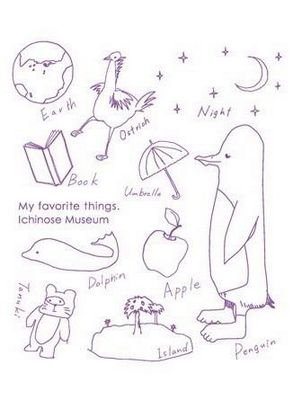 Earth
Ostrich
Night
Book
Umbrella
My favorite things.
Ichinose Museum
Dolphin
Apple
Tanuki
Island
Penguin